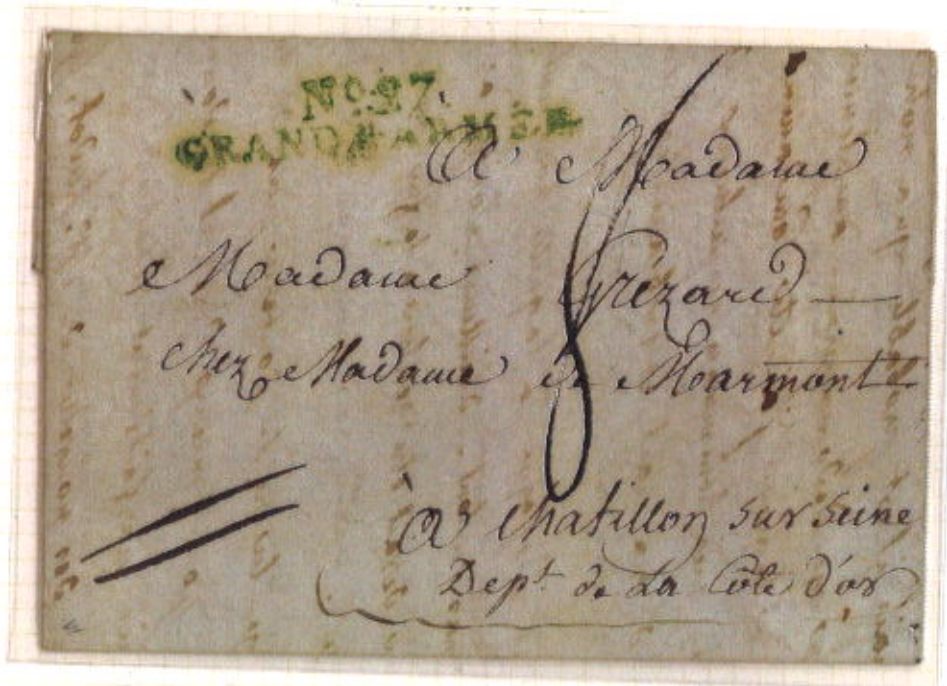 No. 27.
GRANDE ARMÉE
A Madame
Madame Grézard
chez Madame de Marmont
8
à Chatillon sur Seine
Dept. de La Côte d'or